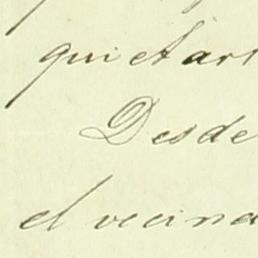 quietar
Desde
el vecina